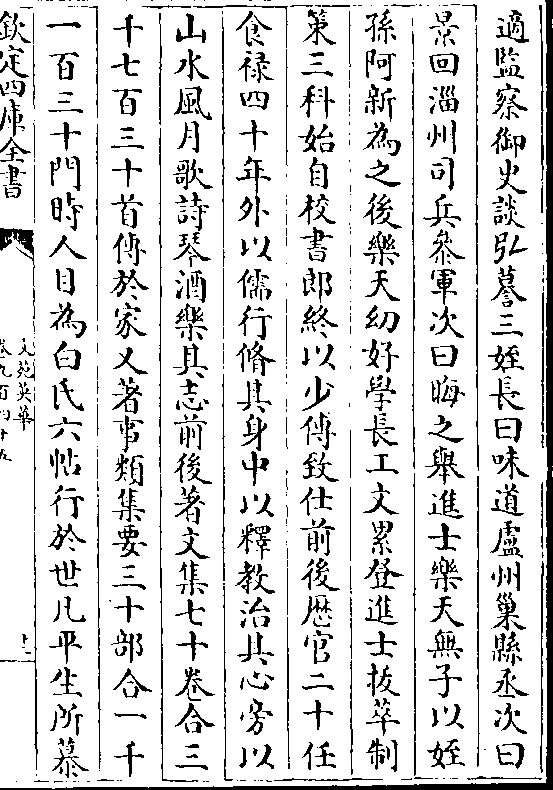 適監察御史談弘謩三姪長曰味道廬州巢縣丞次曰
景回淄州司兵叅軍次曰晦之舉進士樂天無子以姪
孫阿新為之後樂天幼好學長工文累登進士拔萃制
策三科始自校書郎終以少傅致仕前後歴官二十任
食禄四十年外以儒行脩其身中以釋教治其心旁以
山水風月歌詩琴酒樂其志前後著文集七十卷合三
千七百三十首傳於家又著事類集要三十部合一千
一百三十門時人目為白氏六帖行於世凡平生所慕
欽定四庫全書
文苑英華
卷九百四十五